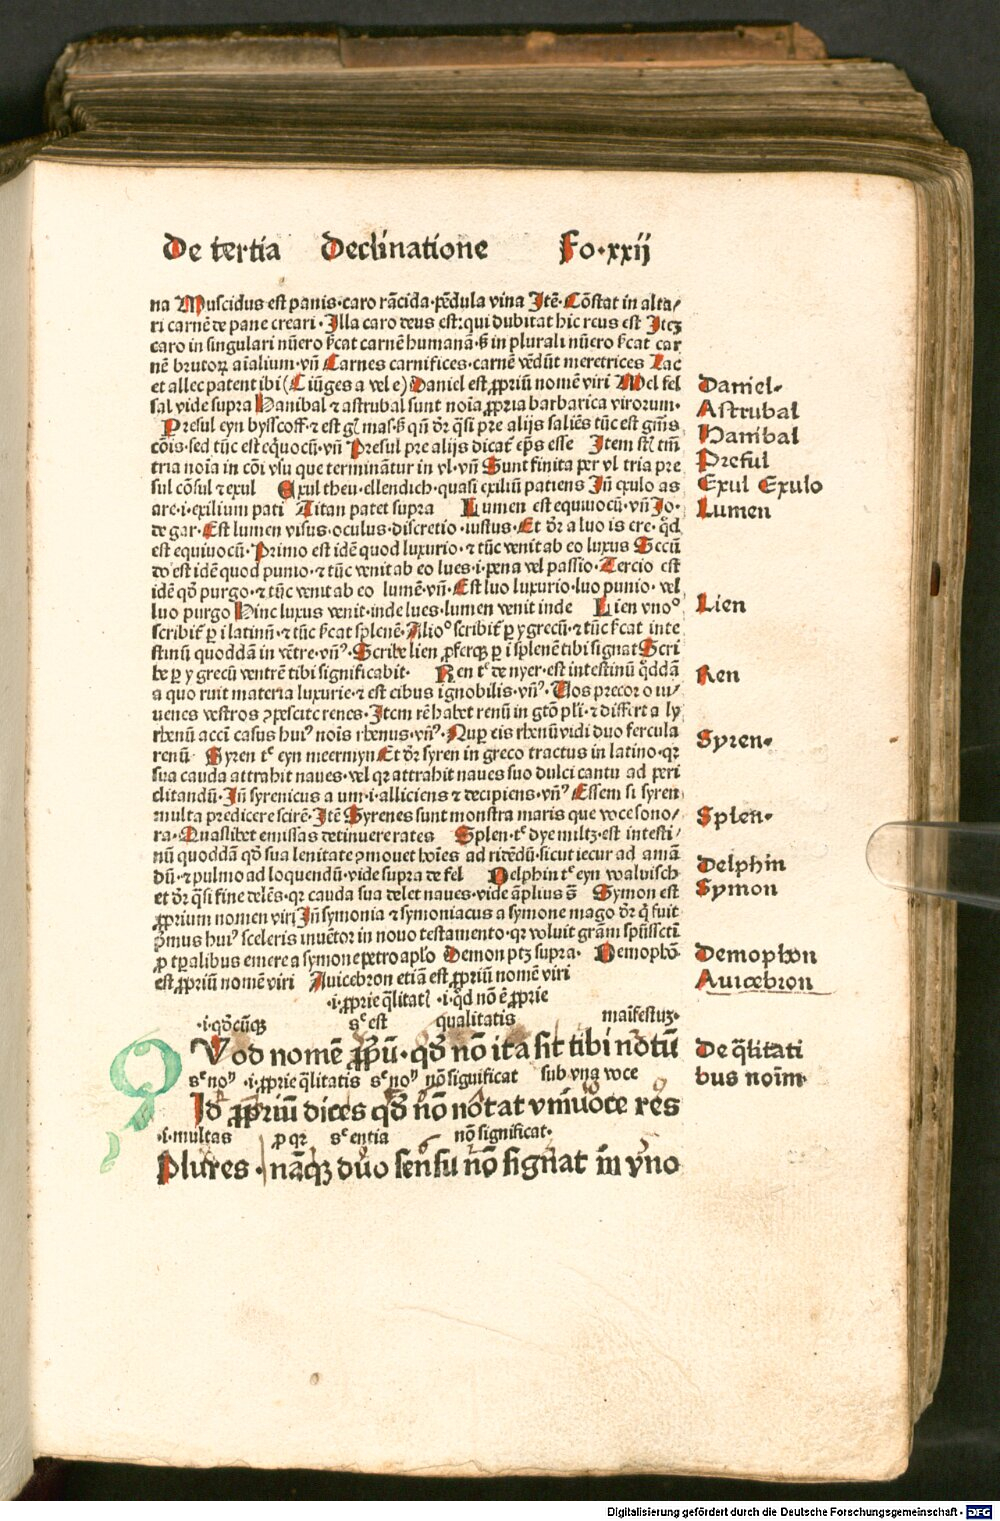 De tertia Declinatione Fo.xxij
na Muscidus est panis.caro rãcida.pẽdula vina Itẽ.Cõstat in alta/
ri carnẽ de pane creari.Illa caro deus est:qui dubitat hic reus est Itẽ
caro in singulari nũero ſcat carnẽ humanã.ſ in plurali nũero ſcat car
nẽ brutoꝝ aĩalium.vñ Carnes carnifices.carnẽ vẽdũt meretrices Lac
et allec patent ibi (Ciũges a vel e) Daniel est ꝓpriũ nomẽ viri Mel fel
sal vide supra Hanibal ⁊ astrubal sunt noĩa ꝓpria barbarica virorum.
Presul eyn bysscoff.⁊ est gĩ mas.ſ qñ dr̃ q̃si pre alijs saliẽs tũc est gñis
cõis.sed tũc est eq̃uocũ.vñ Presul pre alijs dicat̃ ep̃s esse Item sĩ tm̃
tria noĩa in cõi vsu que terminãtur in vl.vñ Sunt finita per vl tria pre
sul cõsul ⁊ exul Exul theu.ellendich.quasi exiliũ patiens Iñ exulo as
are.i.exilium pati Titan patet supra Lumen est equiuocũ.vñ Jo.
de gar.Est lumen visus.oculus.discretio.iustus.Et dr̃ a luo is ere.q̃d
est equiuocũ.Primo est idẽ quod luxurio.⁊ tũc venit ab eo luxus Secũ
do est idẽ quod punio.⁊ tũc venit ab eo lues.i.pena vel passio.Tercio est
idẽ qđ purgo.⁊ tũc venit ab eo lumẽ.vñ.Est luo luxurio.luo punio.vel
luo purgo Hinc luxus venit.inde lues.lumen venit inde Lien vnoᵒ
scribit̃ ꝑ i latinũ.⁊ tũc ſcat splenẽ.Alioᵒ scribit̃ ꝑ y grecũ.⁊ tũc ſcat inte
stinũ quoddã in vẽtre.vñꝰ.Scribe lien ꝓferqꝫ ꝑ i splenẽ tibi signat Scri
be ꝑ y grecũ ventrẽ tibi significabit. Ren tᶜ de nyer.est intestinũ q̃ddã
a quo ruit materia luxurie.⁊ est cibus ignobilis.vñꝰ.Vos precor o iu/
uenes vestros ꝯpescite renes.Item rẽ habet renũ in gtõ pli.⁊ differt a ly
rhenũ acci casus huiꝰ nois rhenus.vñꝰ.Nuꝑ eis rhenũ vidi duo fercula
renũ Syren tᶜ eyn meermyn Et dr̃ syren in greco tractus in latino.qr
sua cauda attrahit naues.vel qr attrahit naues suo dulci cantu ad peri
clitandũ.Iñ syrenicus a um.i.alliciens ⁊ decipiens.vñꝰ Essem si syren
multa predicere scirẽ.Itẽ Syrenes sunt monstra maris que voce sono/
ra.Quaslibet emissas detinuere rates Splen.tᶜ dye miltz.est intesti/
nũ quoddã qđ sua lenitate ꝯmouet hoĩes ad ridẽdũ.sicut iecur ad amã
dũ.⁊ pulmo ad loquendũ.vide supra de fel Delphin tᶜ eyn walvisch
et dr̃ q̃si fine delẽs.qr cauda sua delet naues.vide ãplius s̃ Symon est
ꝓprium nomen viri Iñ symonia ⁊ symoniacus a symone mago dr̃ q̃ fuit
p̃mus huiꝰ sceleris inuẽtor in nouo testamento.qr voluit grãm spũssctĩ
ꝓ tꝑalibus emere a symone petro aplo Demon ptꝫ supra. Demophõ
est ꝓpriũ nomẽ viri Auicebron etiã est ꝓpriũ nomẽ viri
.i.ꝓprie q̃litatĩ .i.q̃d nõ ẽ ꝓprie
.i.qđcũqꝫ sᶜ est qualitatis maĩfestuꝫ.
QVod nomẽ ꝓpriũ.qđ nõ ita sit tibi notũ
sᶜ noꝰ .i.ꝓprie q̃litatis sᶜ noꝰ nõ significat sub vna voce
Id ꝓprium dices qđ non notat vni uoce res
.i.multas ꝓ qr sᶜ entia nõ significat.
Plures.namqꝫ duo sensu nõ signat ĩn vno
Daniel.
Astrubal
Hanibal
Presul
Exul Exulo
Lumen
Lien
Ren
Syren.
Splen.
Delphin
Symon
Demophon
Auicebron
De q̃litati
bus noĩm.
Digitalisierung gefördert durch die Deutsche Forschungsgemeinschaft - DFG